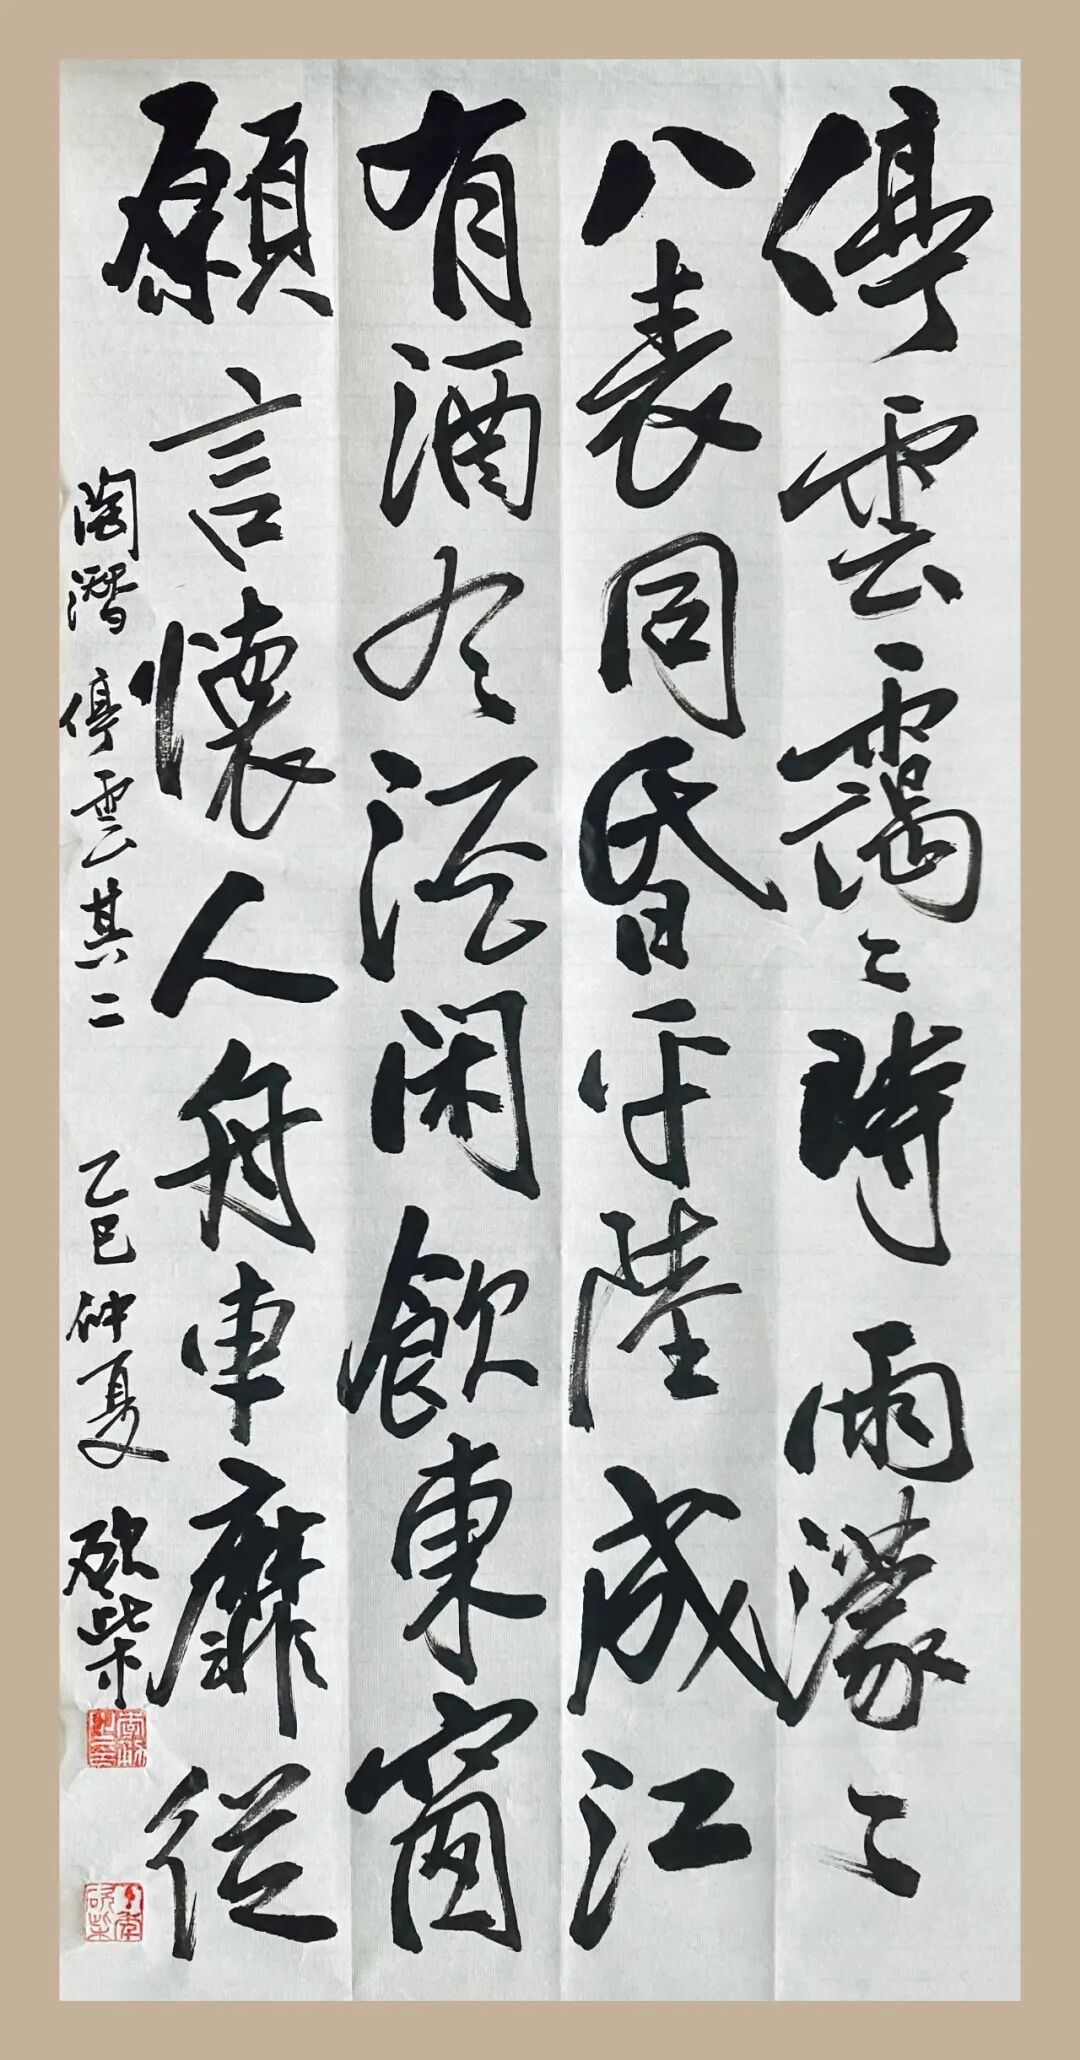 停雲靄〻時雨濛〻
八表同昏平陸成江
有酒有酒閑飲東窗
願言懷人舟車靡從
陶潛停雲其二 乙巳仲夏 砍柴